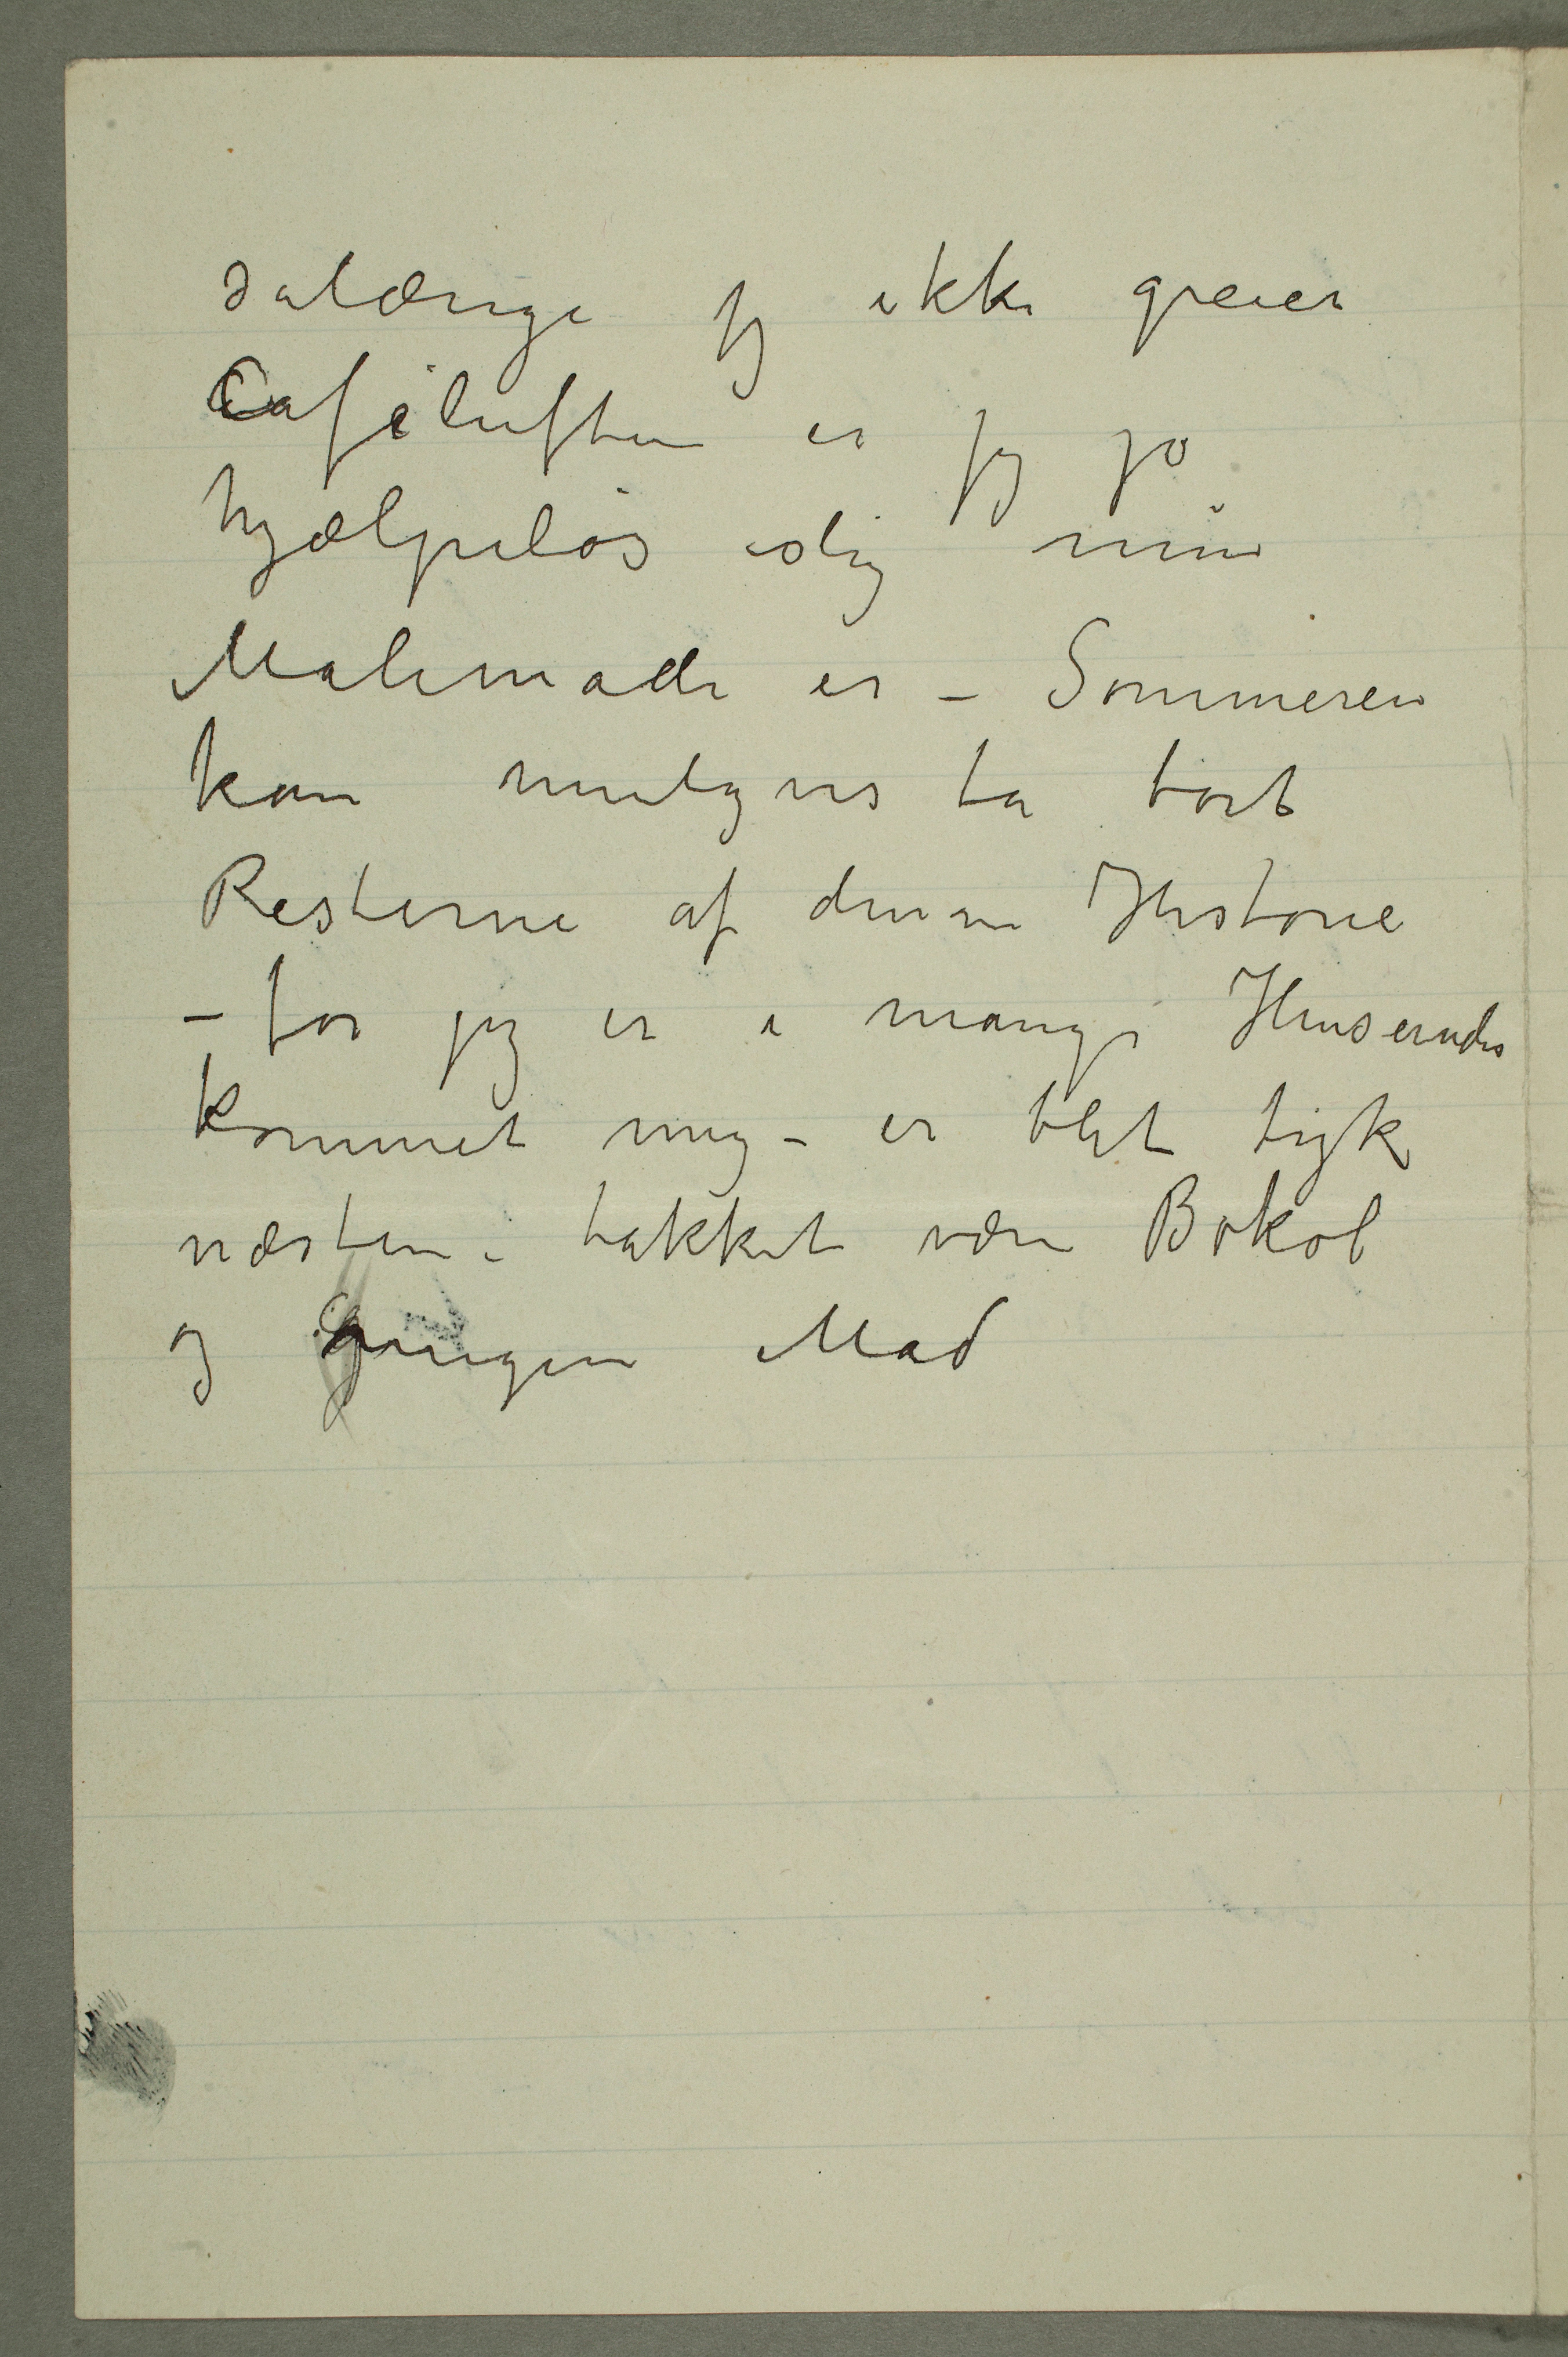 salænge jeg ikke greier
Caféluften er jeg jo
hjælpeløs slig min
Malemåde er – Sommeren
kan muligvis ta bort
Resterne af denne Historie
– for jeg er i mange Henseender
kommet mig – er blet tyk
næsten – takket være Bokøl
og Mad